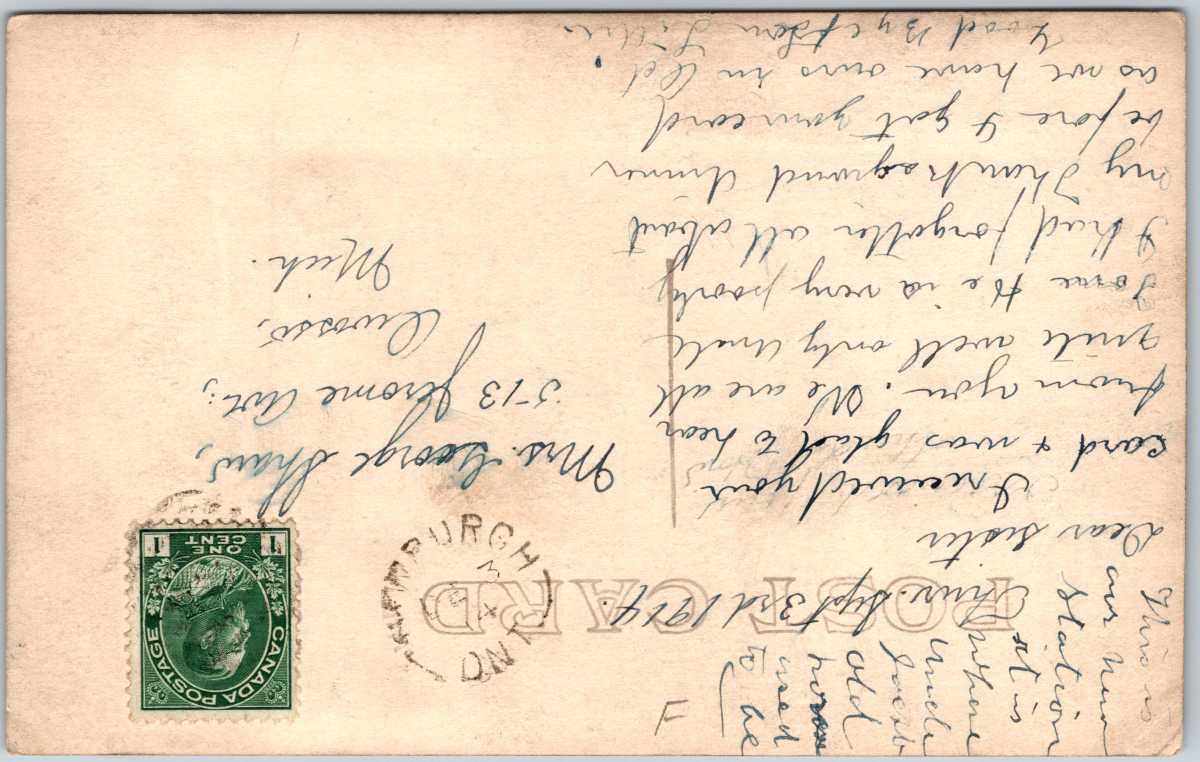 POST CARD
CANADA POSTAGE
ONE
CENT
1 1
BURGH
3
14
ONT
F
This is
our new
Station
where
it is
Uncle
Jacob
old
house
used
to be
Thur. Sept 3rd 1914.
Dear Sister
I received your
card & was glad to hear
from you. We are all
quite well only Uncle
Tome He is very poorly
I had forgotten all about
my Thanksgiving dinner
before I got your card
as we have ours in Oct.
Good Bye from
Mrs. George Shaw,
513 Jerome Ave.,
Owosso,
Mich.